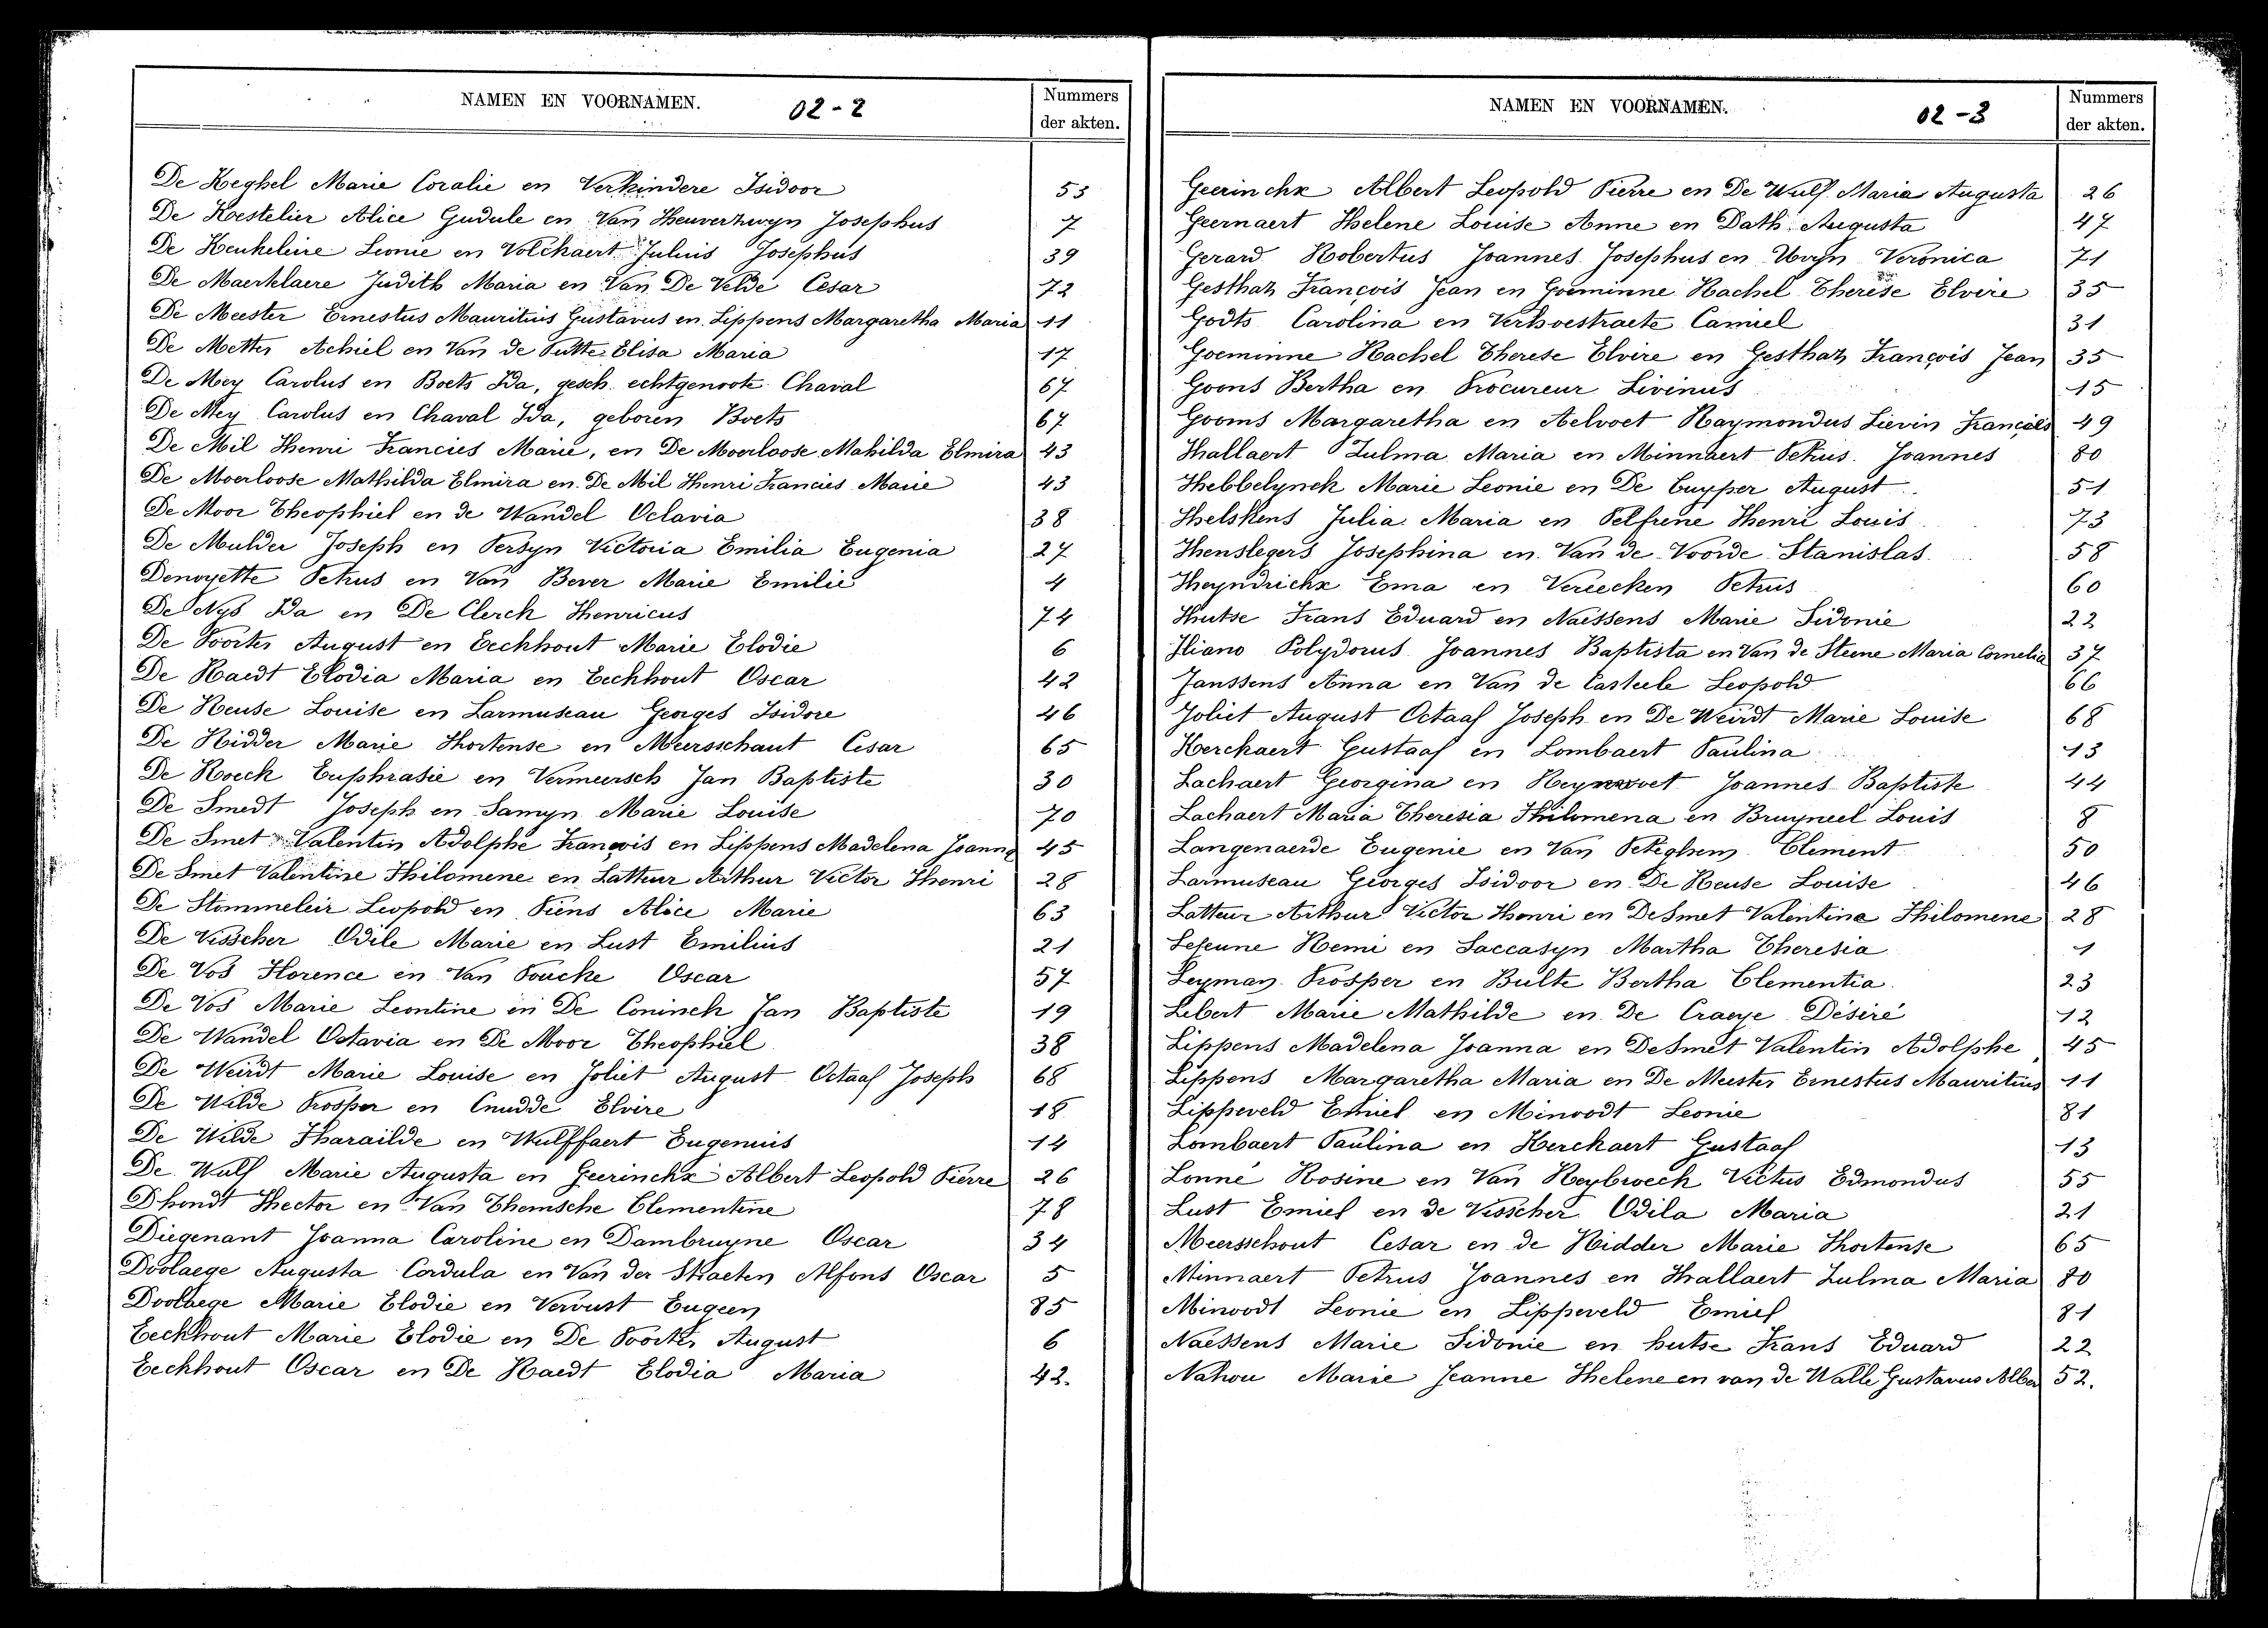 NAMEN EN VOORNAMEN. 02-2 Nummers der akten.
De Keghel Marie Coralie en Verkindere Isidoor 53
De Koestelier Alice Gudule en Van Heuverzwyn Josephus 7
De Keukeleire Leonie en Volckaert Julius Josephus 39
De Maertelaere Judith Maria en Van De Velde César 72
De Meester Ernestus Mauritius Gustavus en Lippens Margaretha Maria 11
De Metter Achiel en Van de Putte Elisa Maria 17
De Mey Carolus en Boets Ida, gesch. echtgenoote Chaval 67
De Mey Carolus en Chaval Ida, geboren Boets 67
De Mil Henri Francies Marie, en De Moerloose Mahilda Elmira 43
De Moerloose Mathilda Elmira en De Mil Henri Francies Marie 43
De Moor Theophiel en de Wandel Octavia 38
De Mulder Joseph en Persyn Victoria Emilia Eugenia 27
Denoyette Petrus en Van Bever Marie Emilie 4
De Nys Ida en De Clerck Henricus 74
De Poorter August en Eeckhout Marie Elodie 6
De Raedt Elodia Maria en Eeckhout Oscar 42
De Reuse Louise en Larmuseau Georges Isidore 46
De Ridder Marie Hortense en Meersschaut Cesar 65
De Roeck Euphrasie en Vermeersch Jan Baptiste 30
De Smedt Joseph en Samyn Marie Louise 70
De Smet Valentin Adolphe François en Lippens Madelena Joanna 45
De Smet Valentine Philomene en Latteur Arthur Victor Henri 28
De Stommeleir Leopold en Piens Alice Marie 63
De Visscher Odile Marie en Lust Emilius 21
De Vos Florence en Van Poucke Oscar 57
De Vos Marie Leontine en De Coninck Jan Baptiste 19
De Wandel Octavia en De Moor Theophiel 38
De Weirdt Marie Louise en Joliet August Octaaf Joseph 68
De Wilde Prosper en Cnudde Elvire 18
De Wilde Pharailde en Wulffaert Eugenius 14
De Wulf Marie Augusta en Geerinckx Albert Leopold Pierre 26
Dhondt Hector en Van Themsche Clementine 78
Diegenant Joanna Caroline en Dambruyne Oscar 34
Doolaege Augusta Cordula en Van der Straeten Alfons Oscar 5
Doolaege Marie Elodie en Vervust Eugeen 85
Eeckhout Marie Elodie en De Poorter August 6
Eeckhout Oscar en De Raedt Elodia Maria 42.
NAMEN EN VOORNAMEN. 02-3 Nummers der akten.
Geerinckx Albert Leopold Pierre en De Wulf Maria Augusta 26
Geernaert Helene Louise Anne en Dath Augusta 47
Gerard Robertus Joannes Josephus en Uvyn Veronica 71
Gesthaz François Jean en Goeminne Rachel Therèse Elvire 35
Godts Carolina en Verhoestraete Camiel 31
Goeminne Rachel Therese Elvire en Gesthaz François Jean 35
Goons Bertha en Procureur Livinus 15
Gooms Margaretha en Aelvoet Raymondus Lievin François 49
Hallaert Zulma Maria en Minnaert Petrus Joannes 80
Hebbelynck Marie Leonie en De Cuyper August 51
Helskens Julia Maria en Pelfrene Henri Louis 73
Henslegers Josephina en Van de Voorde Stanislas 58
Heyndrickx Ema en Vereecken Petrus 60
Hutse Frans Eduard en Naessens Marie Sidonie 22
Iliano Polydorus Joannes Baptista en Van de Steene Maria Cornelia 37
Janssens Anna en Van de Casteele Leopold 66
Joliet August Octaaf Joseph en De Weirdt Marie Louise 68
Kerckaert Gustaaf en Lombaert Paulina 13
Lachaert Georgina en Joannes Baptiste 44
Lachaert Maria Theresia Philomena en Bruyneel Louis 8
Langenaerde Eugenie en Van Peteghem Clement 50
Larmuseau Georges Isidoor en De Reuse Louise 46
Latteur Arthur Victor Henri en De Smet Valentine Philomene 28
Lejeune Remi en Saccasyn Martha Theresia 1
Leyman Prosper en Bulte Bertha Clementia 23
Libert Marie Mathilde en De Craeye Désiré 12
Lippens Madelena Joanna en De Smet Valentin Adolphe 45
Lippens Margaretha Maria en De Meester Ernestus Mauritius 11
Lippeveld Emiel en Minoodt Leonie 81
Lombaert Paulina en Kerckaert Gustaaf 13
Lonné Rosine en Van Reybroeck Victus Edmondus 55
Lust Emiel en de Visscher Odila Maria 21
Meersschout Cesar en de Ridder Marie Hortense 65
Minnaert Petrus Joannes en Hallaert Zulma Maria 80
Minoodt Leonie en Lippeveld Emiel 81
Naessens Marie Sidonie en hutse Frans Eduard 22
Nahou Marie Jeanne Helene en van de Walle Gustavus Alber 52.